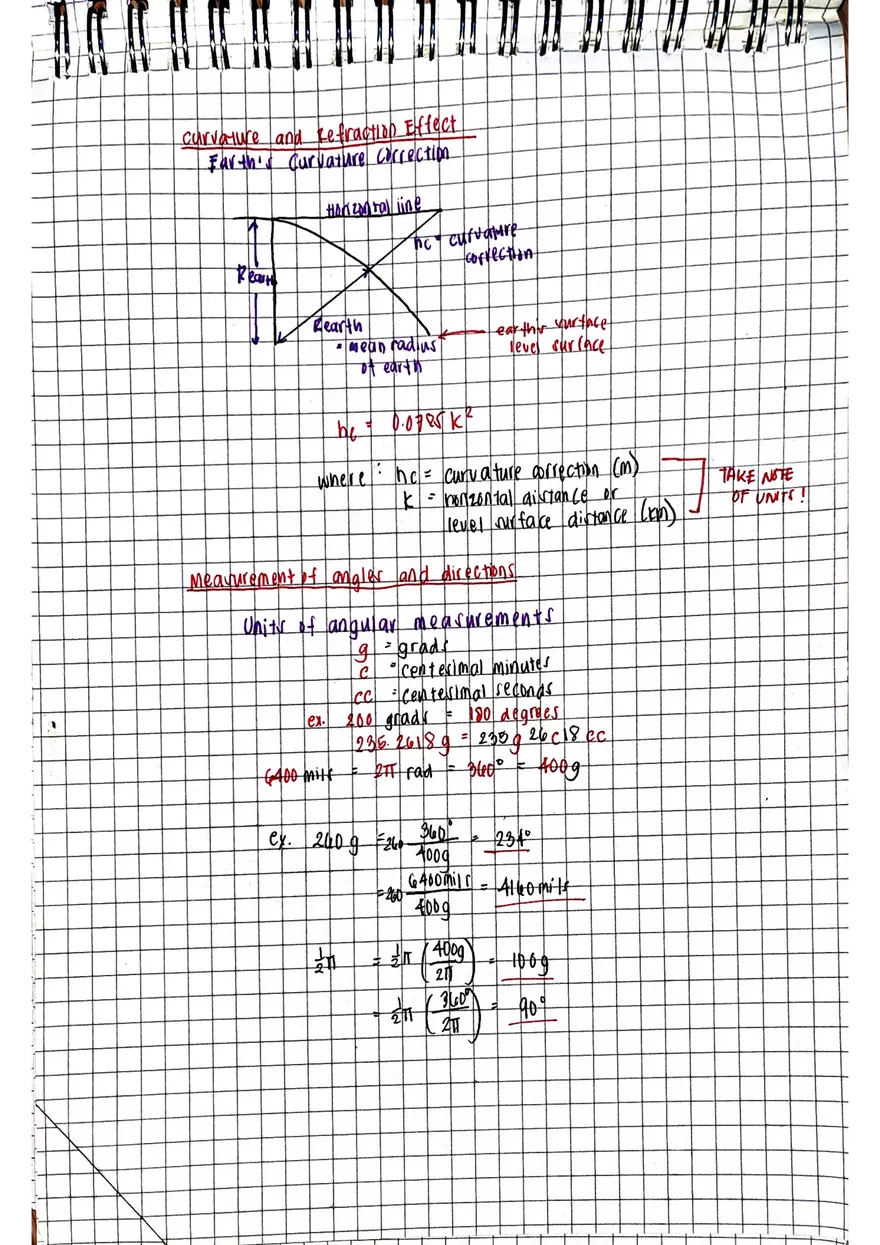 Curvature and Refraction Effect
Earth's Curvature Correction
Horizontal line
hc = curvature
correction
Rearth
Rearth
= mean radius
of earth
earth's surface
level surface
hc = 0.0785 K²
where : hc = curvature correction (m)
K = horizontal distance or
level surface distance (km)
TAKE NOTE
OF UNITS!
Measurement of angles and directions
Units of angular measurements
g = grads
c = centesimal minutes
cc = centesimal seconds
ex. 200 grads = 180 degrees
235.2618g = 235g 26c 18cc
6400 mils = 2π rad = 360° = 400g
ex. 260g = 260 360°/400g = 234°
= 260 6400mils/400g = 4160 mils
½π = ½π (400g/2π) = 100g
= ½π (360°/2π) = 90°